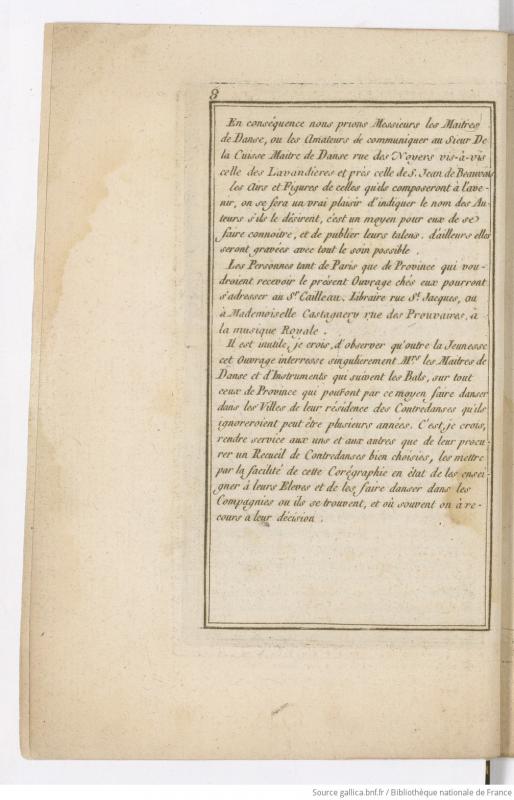 8
En conséquence nous prions Messieurs les Maitres
de Danse, ou les Amateurs de communiquer au Sieur De
la Cuisse Maitre de Danse rue des Noyers vis-à-vis
celle des Lavandieres et près celle de S. Jean de Beauvais
les Airs et Figures de celles qu'ils composeront à l'ave-
nir, on se fera un vrai plaisir d'indiquer le nom des Au-
teurs s'ils le désirent, c'est un moyen pour eux de se
faire connoitre, et de publier leurs talens. d'ailleurs elles
seront gravées avec tout le soin possible.
Les Personnes tant de Paris que de Province qui vou-
droient recevoir le présent Ouvrage chés eux pourront
s'adresser au Sr. Cailleau, Libraire rue St. Jacques, ou
à Mademoiselle Castagnery rue des Prouvaires, à
la musique Royale.
Il est inutile, je crois, d'observer qu'outre la Jeunesse
cet Ouvrage interresse singulierement Mrs. les Maitres de
Danse et d'Instruments qui suivent les Bals, sur tout
ceux de Province qui pouront par ce moyen faire danser
dans les Villes de leur résidence des Contredanses qu'ils
ignoreroient peut être plusieurs années. C'est, je crois,
rendre service aux uns et aux autres que de leur procu-
rer un Recueil de Contredanses bien choisies, les mettre
par la facilité de cette Corégraphie en état de les ensei-
gner à leurs Eleves et de les faire danser dans les
Compagnies ou ils se trouvent, et où souvent on à re-
cours à leur décision.
Source gallica.bnf.fr / Bibliothèque nationale de France